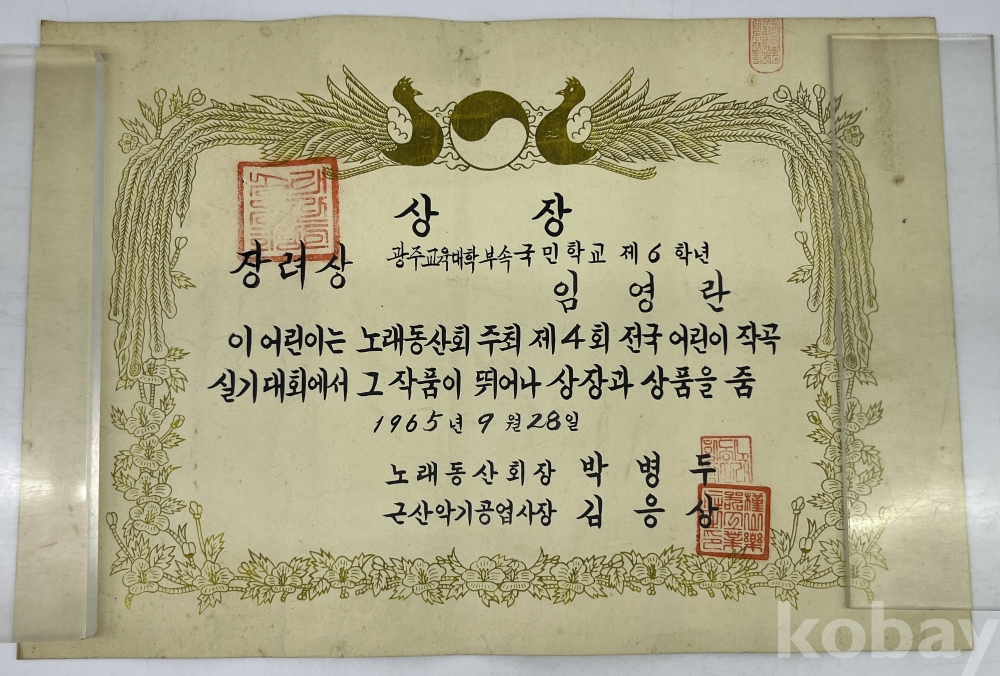 상 장
장려상
광주교육대학부속국민학교 제6학년
임영란
이 어린이는 노래동산회 주최 제4회 전국 어린이 작곡
실기대회에서 그 작품이 뛰어나 상장과 상품을 줌
1965년 9월 28일
노래동산회장 박병두
근산악기공업사장 김응상
kobay